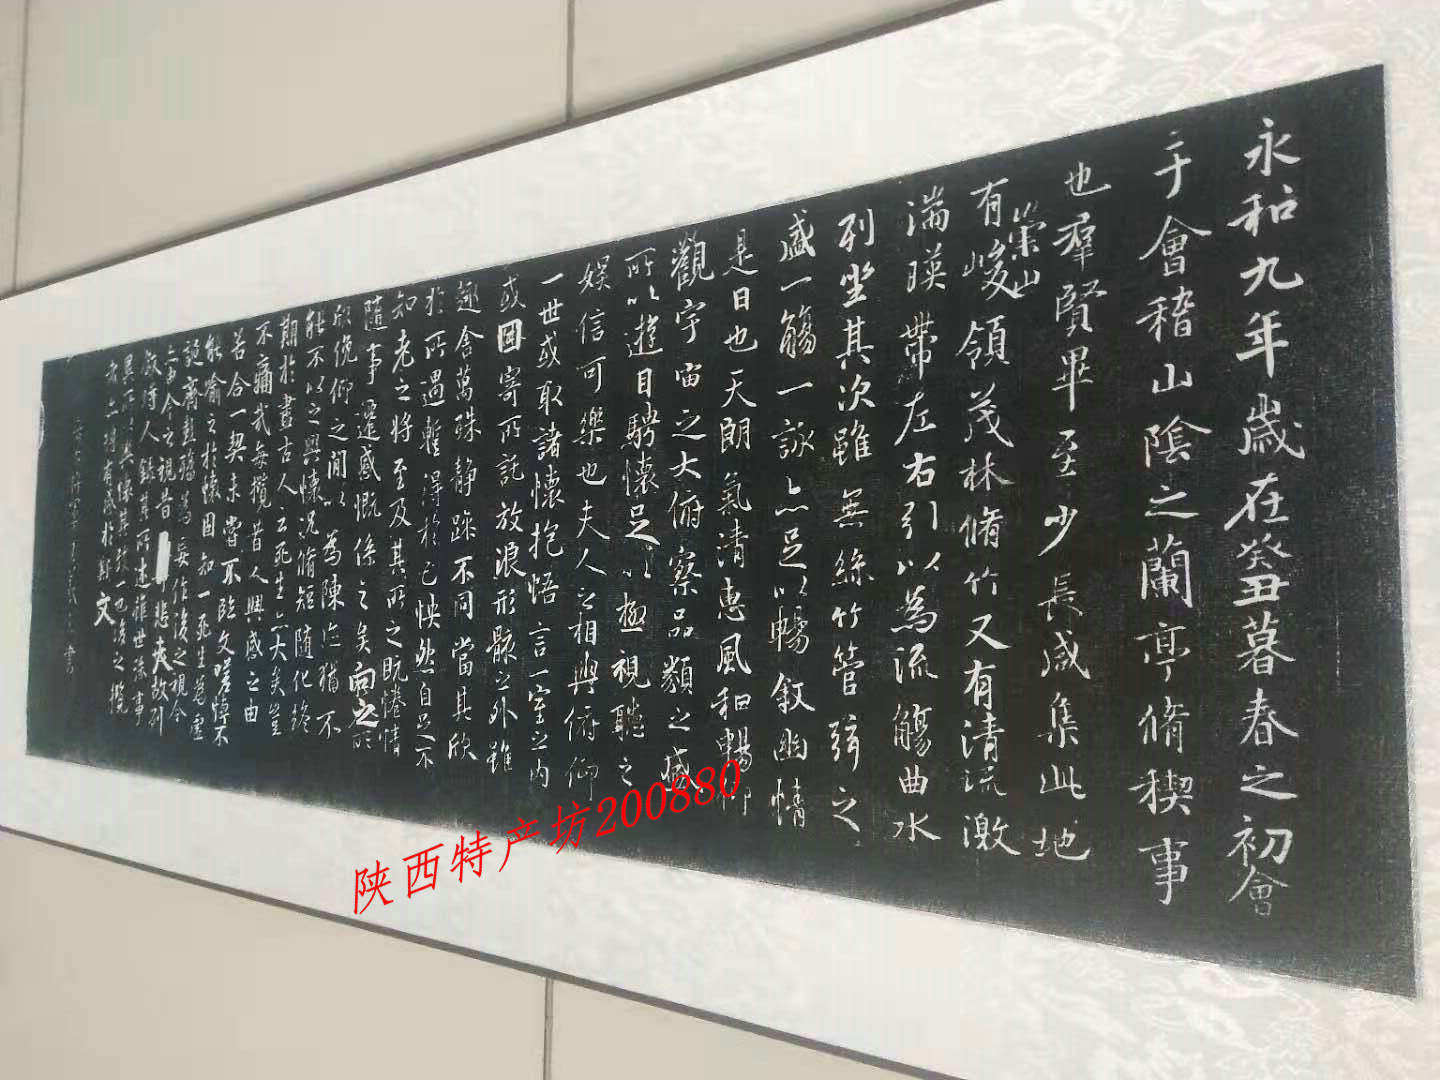 永和九年歲在癸丑暮春之初會
于會稽山陰之蘭亭脩稧事
也羣賢畢至少長咸集此地
有崇山峻領茂林脩竹又有清流激
湍暎帶左右引以為流觴曲水
列坐其次雖無絲竹管弦之
盛一觴一詠亦足以暢敘幽情
是日也天朗氣清惠風和暢仰
觀宇宙之大俯察品類之盛
所以遊目騁懷足以極視聽之
娛信可樂也夫人之相與俯仰
一世或取諸懷抱悟言一室之內
或因寄所託放浪形骸之外雖
趣舍萬殊静躁不同當其欣
於所遇暫得於己怏然自足不
知老之將至及其所之既惓情
隨事遷感慨係之矣向之所
欣俛仰之間以為陳迹猶不
能不以之興懷況脩短隨化終
期於盡古人云死生亦大矣豈
不痛哉每攬昔人興感之由
若合一契未嘗不臨文嗟悼不
能喻之於懷固知一死生為虛
誕齊彭殤為妄作後之視今
亦由今之視昔悲夫故列
敘時人錄其所述雖世殊事
異所以興懷其致一也後之攬
者亦將有感於斯文
陕西特产坊200880